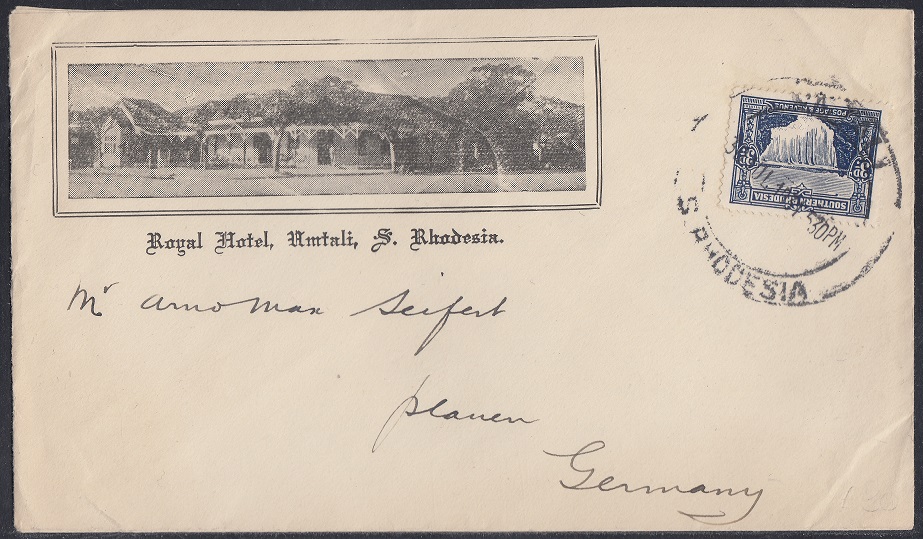 Royal Hotel, Umtali, S. Rhodesia.
POSTAGE & REVENUE
3D 3D
SOUTHERN RHODESIA
30PM
S. RHODESIA
Mr Arno Max Seifert
Plauen
Germany